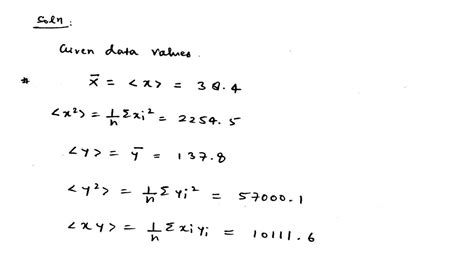 Soln:
Given data values.
* x̄ = <x> = 38.4
<x²> = 1/n Σxi² = 2254.5
<y> = ȳ = 137.8
<y²> = 1/n Σyi² = 57000.1
<xy> = 1/n Σxiyi = 10111.6